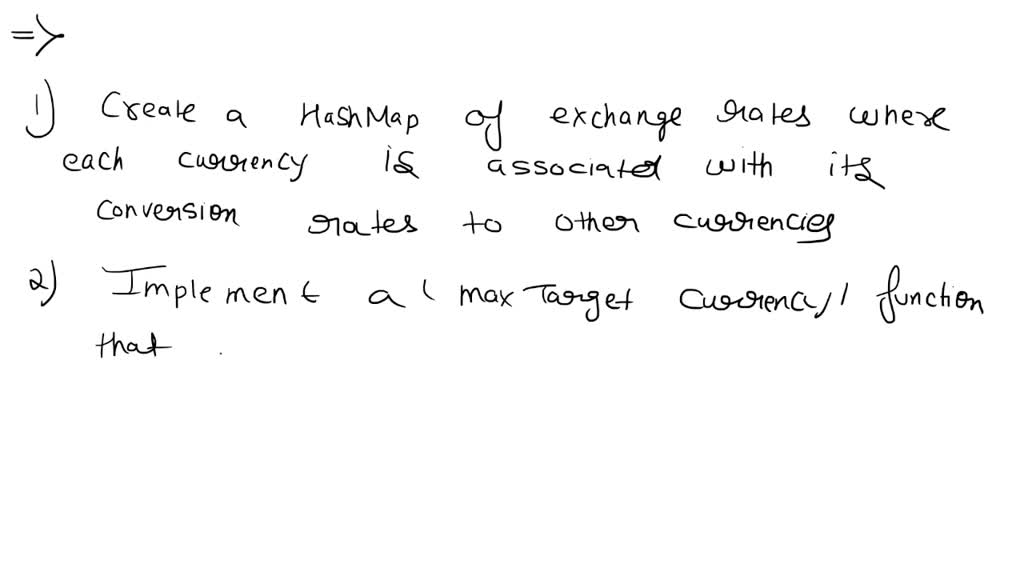 =>
1) Create a HashMap of exchange rates where
each currency is associated with its
conversion rates to other currencies
2) Implement a 'maxTarget Currency' function
that